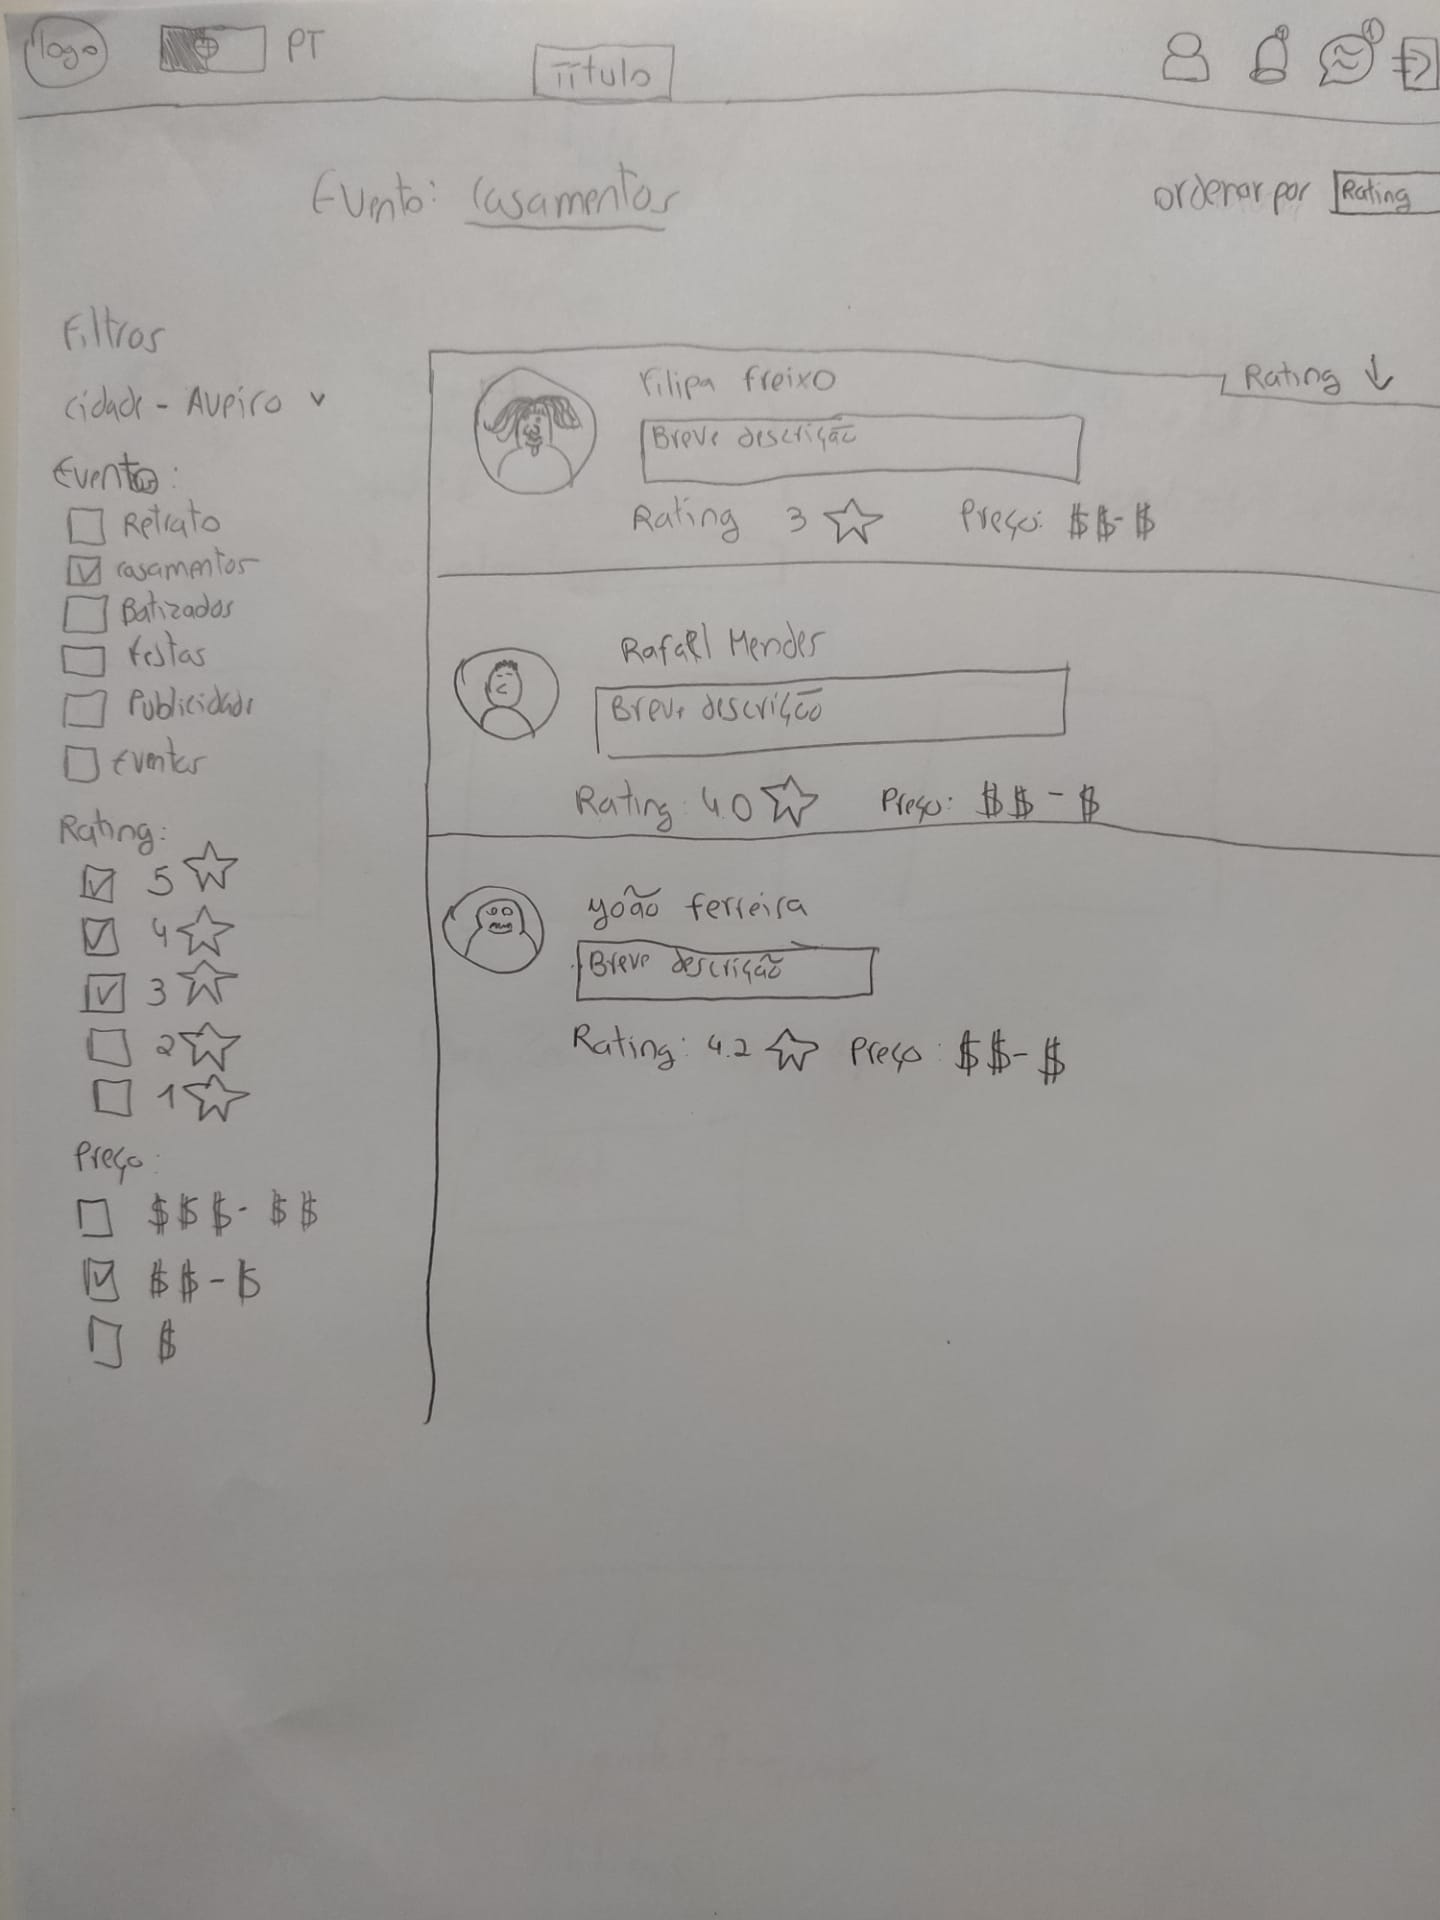 logo PT Título
Evento: casamentos
ordenar por Rating
Filtros
cidade - Aveiro
Eventos:
Retrato
casamentos
Batizados
Festas
Publicidade
Eventos
Rating:
5
4
3
2
1
Preço:
$$$-$$
$$-$
$
Rating ↓
Filipa Freixo
Breve descrição
Rating 3 Preço: $$-$
Rafael Mendes
Breve descrição
Rating: 4.0 Preço: $$-$
João Ferreira
Breve descrição
Rating: 4.2 Preço: $$-$